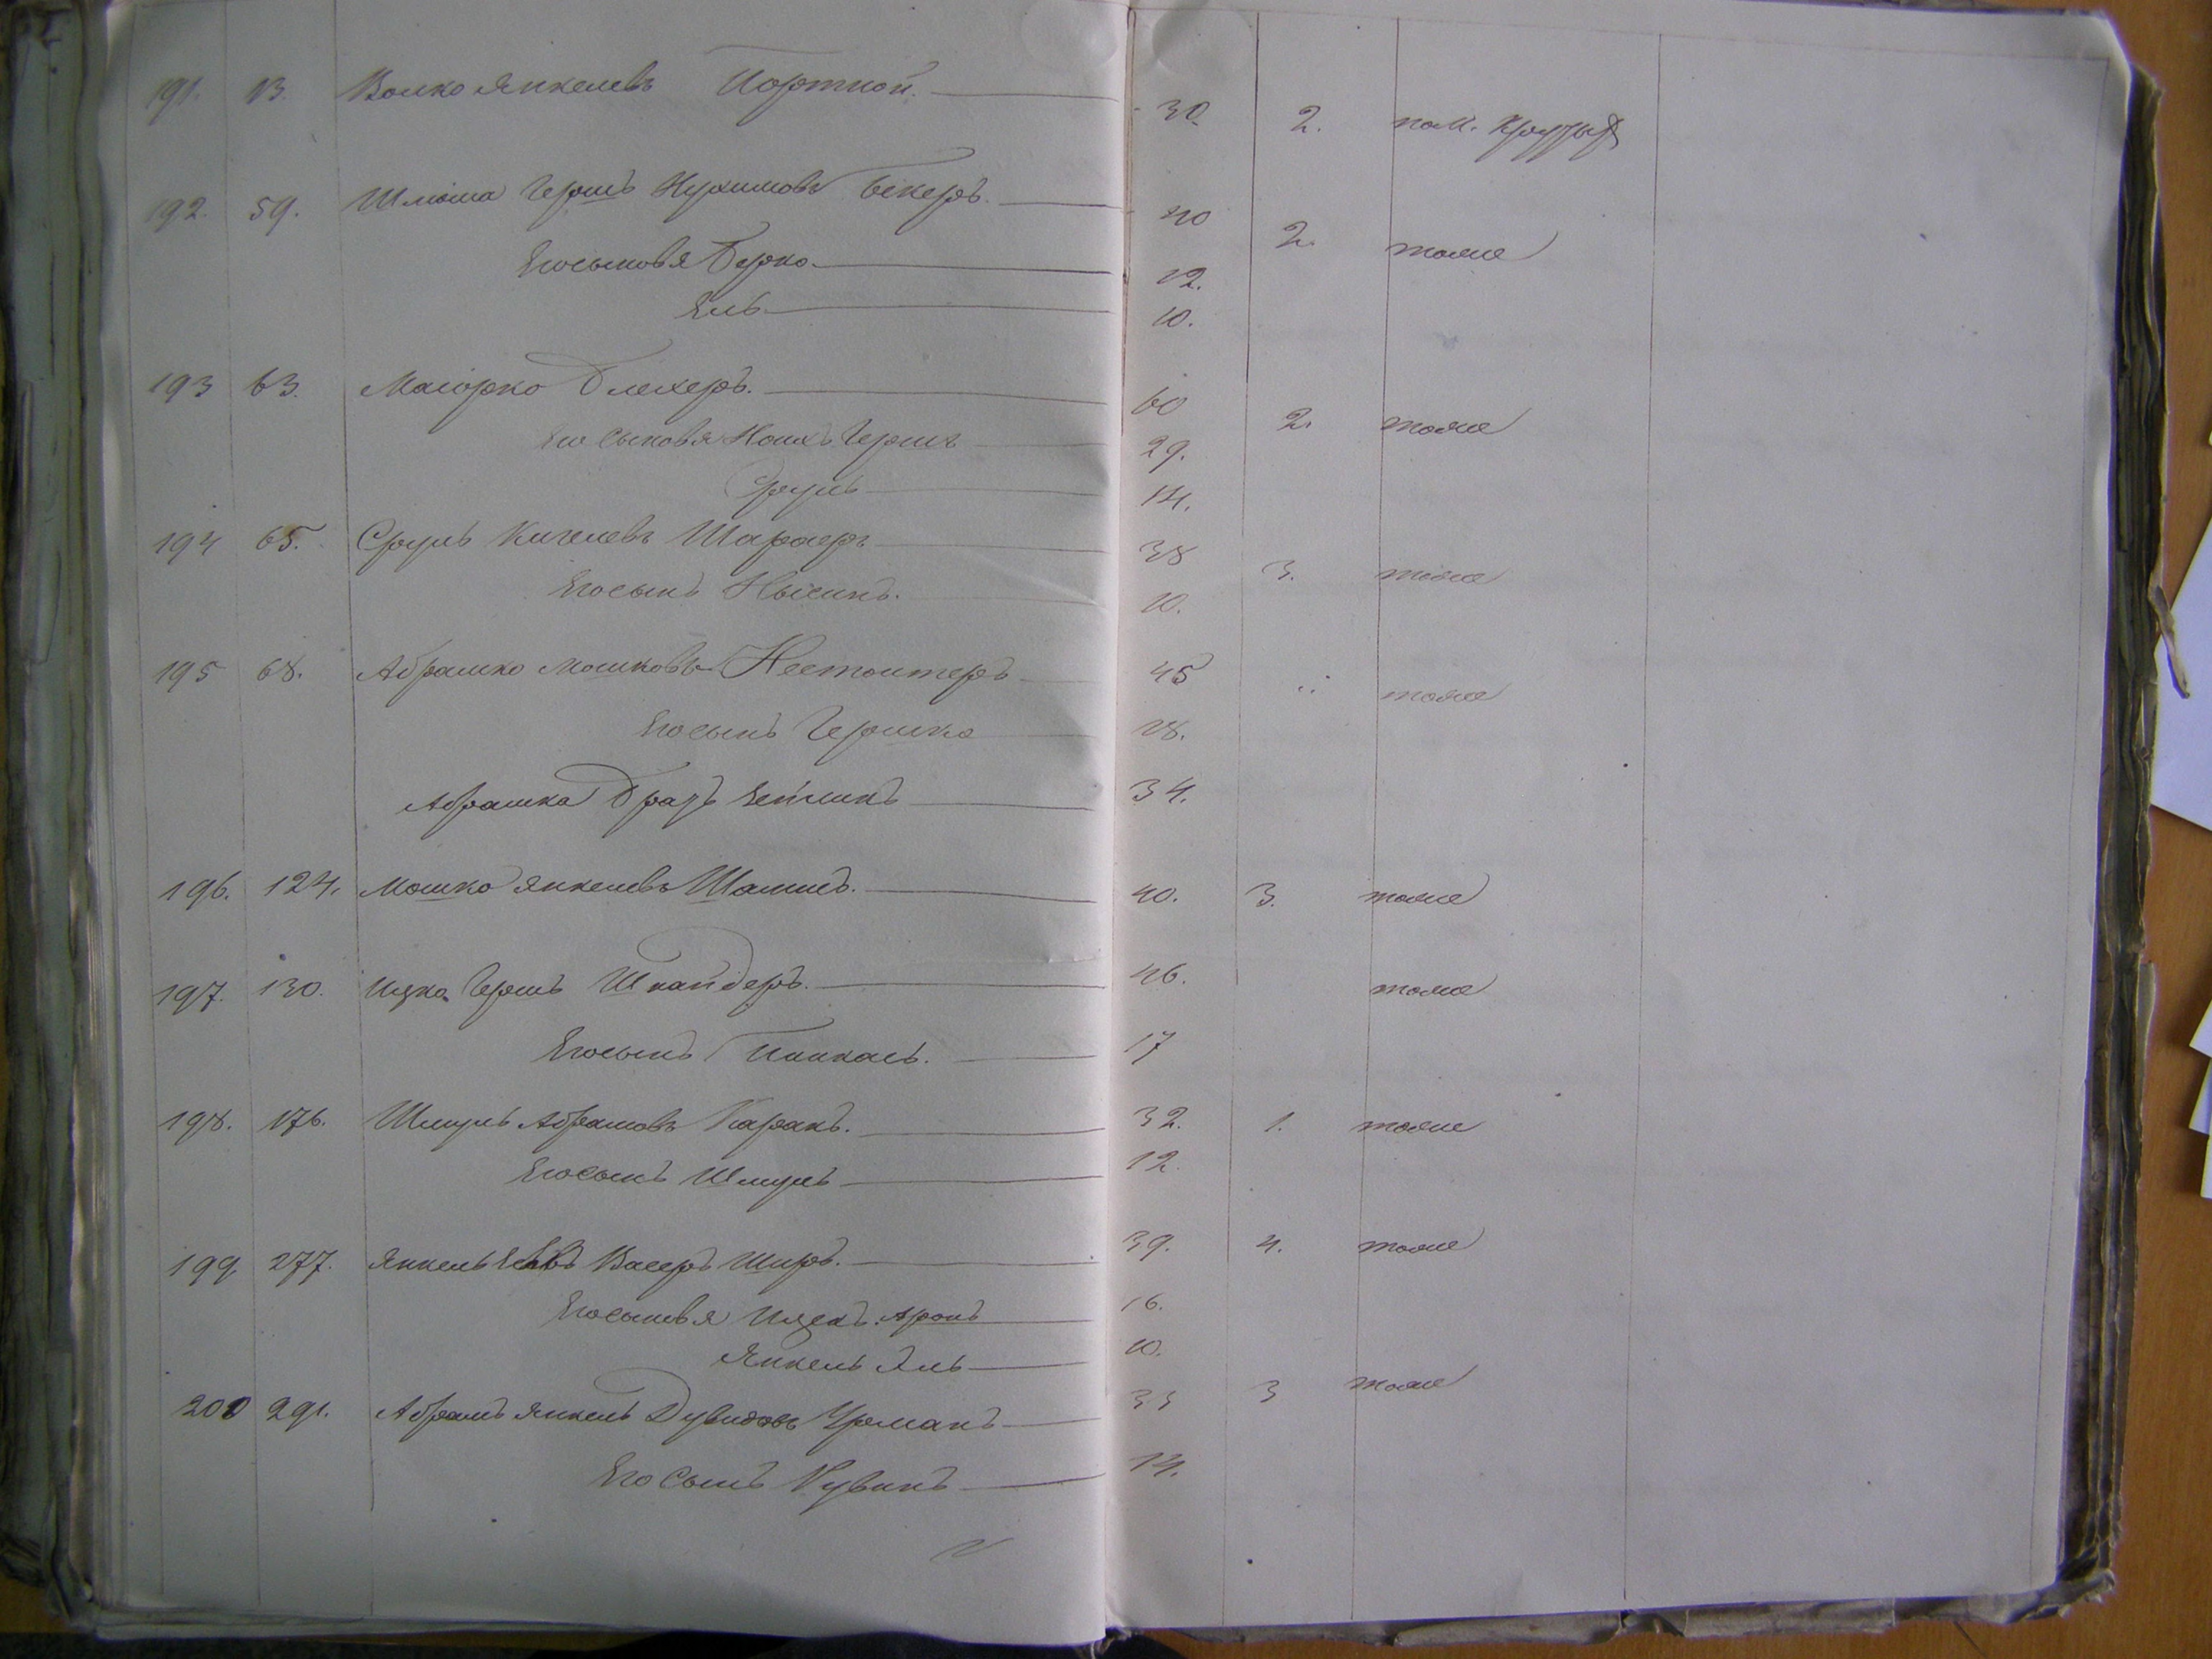 191. 13. Волко Янкелевъ Портной. 30. 2. пом.
192. 59. Шлиома Гершъ Нухимовъ Бекеръ. 40 2. тоже
Его сыновья Берко 12.
Эль 10.
193 63. Маіорко Блехеръ. 60 2. тоже
Его сыновья Ноихъ Гершъ 29.
Сруль 14.
194 65. Сруль Кигелевъ Шараеръ 38 3. тоже
Его сынъ Нысинъ. 10.
195 68. Абрашко Мошковъ Нестоитеръ 45 тоже
Его сынъ Гершко 18.
Абрашка Братъ Лейзикъ 34.
196. 124. Мошко Янкелевъ Шамисъ. 40. 3. тоже
197. 130. Ицко Гершъ Шнайдеръ. 46. тоже
Его сынъ Пинкасъ. 17
198. 176. Шмуль Абрамовъ Каракъ. 32. 1. тоже
Его сынъ Шмуль 12.
199 277. Янкель Васеръ Широ. 39. 4. тоже
Его сыновья Ицекъ Аронъ 16.
Янкель Эль 10.
200 291. Абрамъ Янкель Дувидовъ Урманъ 33 3 тоже
Его Сынъ Рувинъ 14.